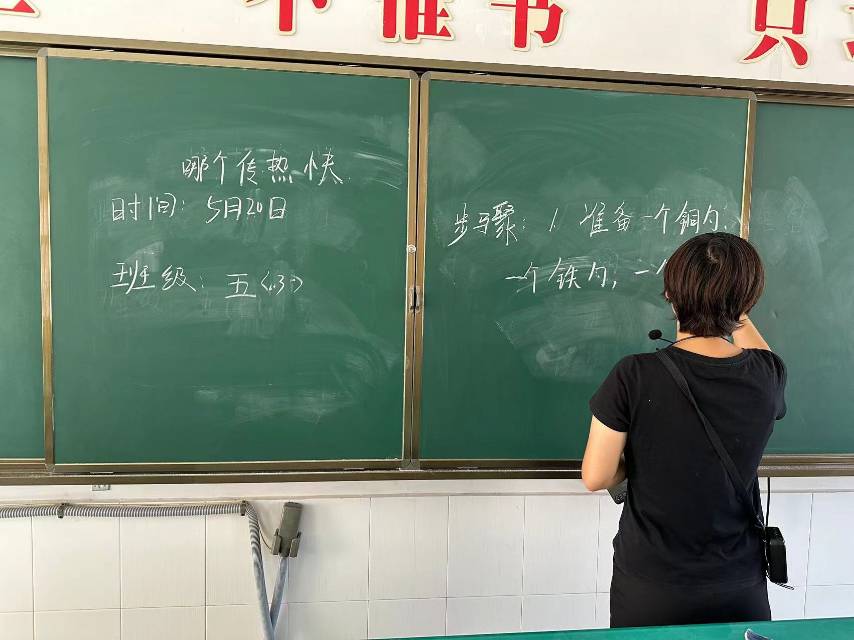 不 惟书 只
哪个传热快
时间：5月20日
班级：五〈3〉
步骤：1. 准备一个铜勺；
一个铁勺，一